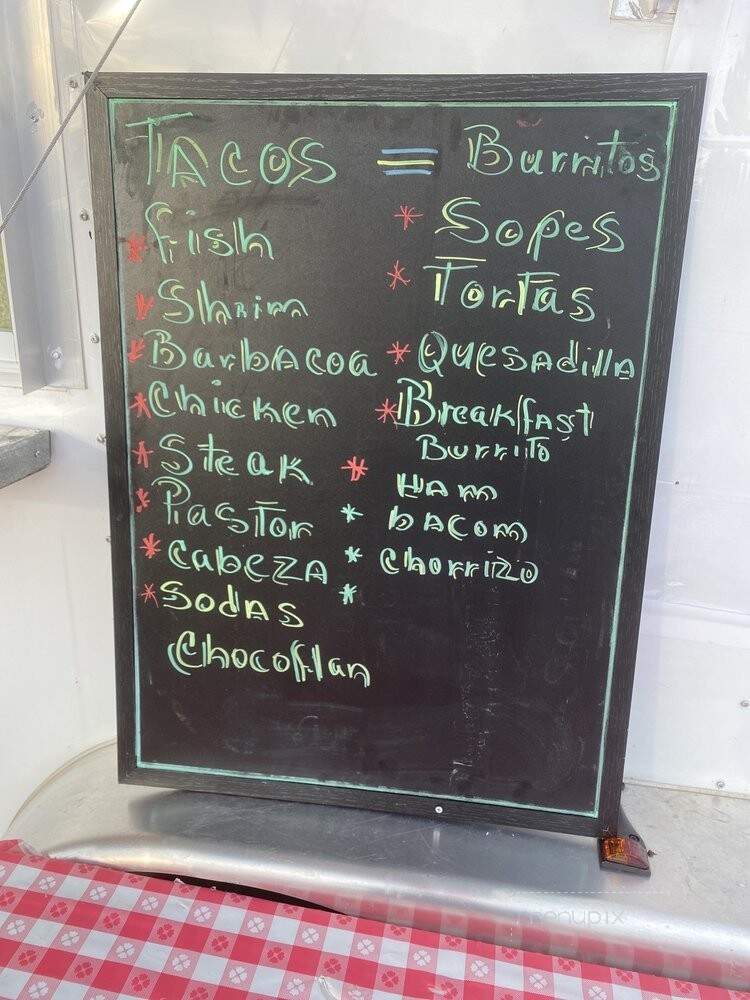 TACOS = Burritos
* fish
* Shrim
* BarbAcoa
* Chicken
* Steak
* PasTor
* CabeZA
* SodAS
Chocoflan
* Sopes
* TorTas
* QueSAdilla
* Breakfast
Burrito
* HAm
* bAcom
* chorrizo
*